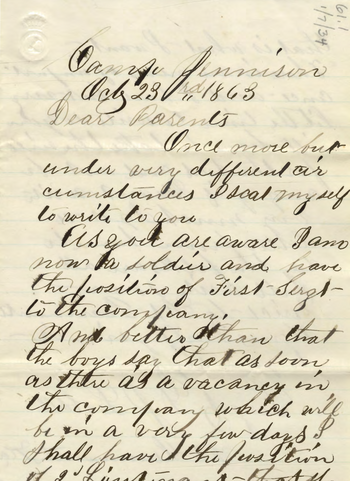 61.1
1/7/34
Camp Jennison
Oct 23rd 1863
Dear Parents
Once more but
under very different cir
cumstances I seat myself
to write to you
As you are aware I am
now a soldier and have
the position of First Sergt
to the company.
And better than that
the boys say that as soon
as there is a vacancy in
the company which will
be in a very few days I
shall have the position
of 2d that